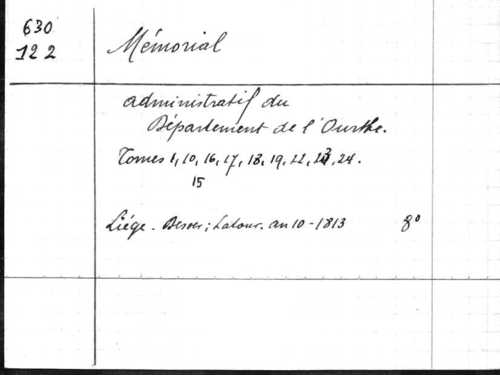 630
122
Mémorial
administratif du
Département de l'Ourthe.
Tomes 1, 10, 16, 17, 18, 19, 22, 23, 24.
15
Liége - ; Latour. an 10 - 1813 8°